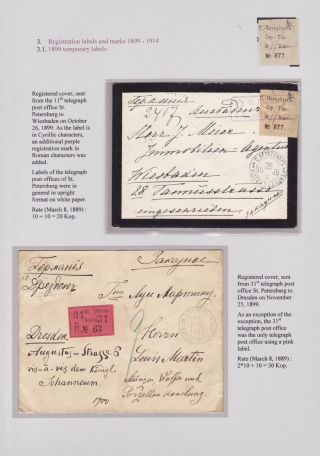 3. Registration labels and marks 1899 - 1914
3.1. 1899 temporary labels
С.-Петербургъ
№ 877.
Registered cover, sent
from the 11th telegraph
post office St.
Petersburg to
Wiesbaden on October
26, 1899. As the label is
in Cyrillic characters,
an additional purple
registration mark in
Roman characters was
added.
Labels of the telegraph
post offices of St.
Petersburg were in
general in upright
format on white paper.
Rate (March 8, 1889) :
10 + 10 = 20 Kop.
Германія
2417
Wiesbaden
Herr J. Meier
Immobilien-Agentur
Wiesbaden
28 Taunusstrasse
eingeschrieben
заказное
С.-Петербургъ
№ 877.
Заказное
Германія
Дрезденъ
31
31
R № 63
Dresden
Augustus-Strasse 6
vis-à-vis dem Königl.
Johanneum.
Herrn
Louis Martin
Münzen, Waffen und
Porzellan Handlung.
Registered cover, sent
from 31st telegraph post
office St. Petersburg to
Dresden on November
25, 1899.
As an exception of the
exception, the 31st
telegraph post office
was the only telegraph
post office using a pink
label.
Rate (March 8, 1889) :
2*10 + 10 = 30 Kop.